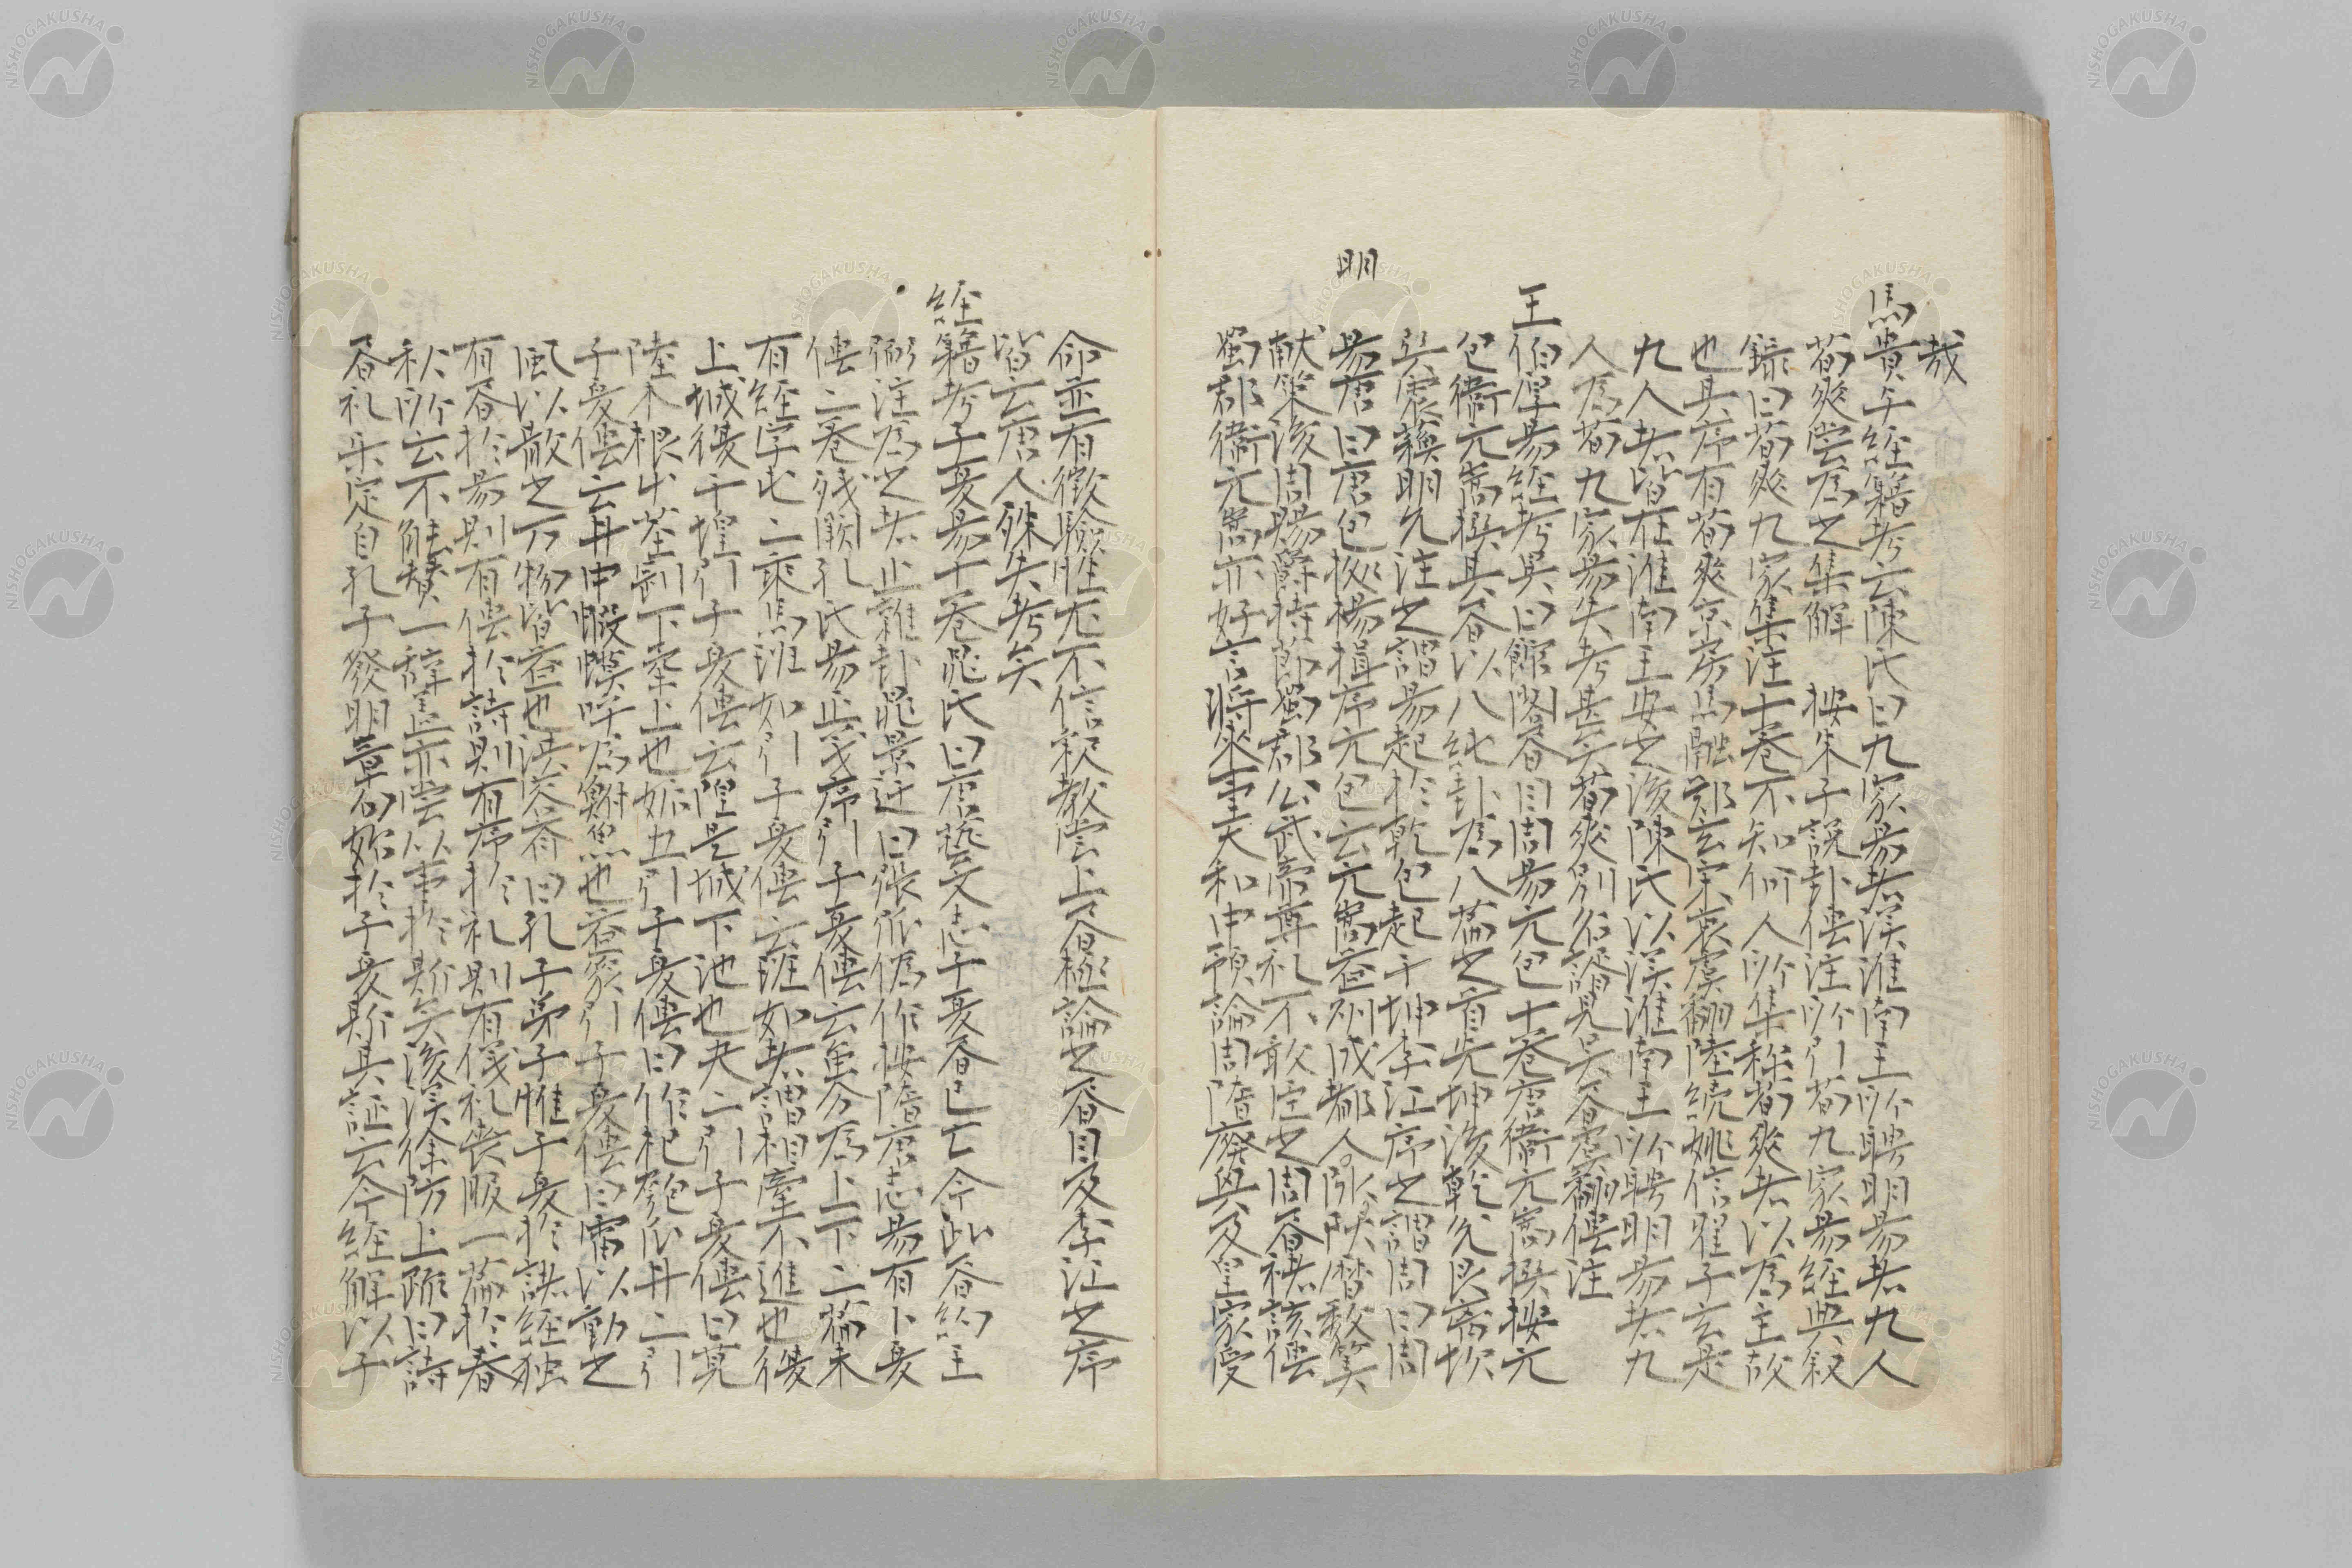 哉
馬貴与経籍考云陳氏曰九家易者漢淮南王所聘明易者九人
荀爽嘗為之集解 按朱子説卦伝注所引荀九家易経典叙
録曰荀爽九家集注十巻不知何人所集称荀爽者以為主故
也其序有荀爽京房馬融鄭玄宋衷虞翻陸績姚信翟子玄是
九人者皆在淮南王安之後陳氏以漢淮南王所聘明易者九
人為荀九家易失考甚矣荀爽別名諝見呉書虞翻伝注
王伯厚易経考異曰館閣書目周易元包十巻唐衛元嵩撰按元
包衛元嵩撰其書以八純卦為八篇之首先坤後乾兌艮离坎
巽震蘓明允注之謂易起於乾包起于坤李江序之謂周曰周
明
易唐曰唐包按楊楫序元包云元嵩益州成都人 陰陽暦数算
献策後周賜爵持節蜀郡公武帝尊礼不敢臣之周書褚該伝
蜀郡衛元嵩亦好言将来事天和中預論周隋廃興及皇家受
命並有徴験性尤不信釈教嘗上書極論之書目及李江之序
皆云唐人殊失考矣
経籍考子夏易十巻晁氏曰唐藝文志子夏書已亡今此書約王
弼注為之者止雑卦晁景迂曰張弧偽作按隋唐志易有卜夏
伝二巻残闕孔氏易正義序引子夏伝云虽分為上下二篇未
有経字屯二乗馬班如引子夏伝云班如者謂相牽不進也復
上城復于隍引子夏伝云隍是城下池也夬二引子夏伝曰莧
陸木根出茎剛下柔上也姤五引子夏伝曰作杞匏瓜井二引
子夏伝云井中蝦蟆呼為鮒魚也益象引子夏伝曰雷以動之
風以散之万物皆益也洪容斎曰孔子弟子惟子夏於諸経独
有書於易則有伝於詩則有序於礼則有儀礼喪服一篇於春
秋所云不能賛一辞盖亦嘗以事於斯矣後漢徐防上疏曰詩
書礼楽定自孔子発明章句始於子夏斯其証云今経解以子